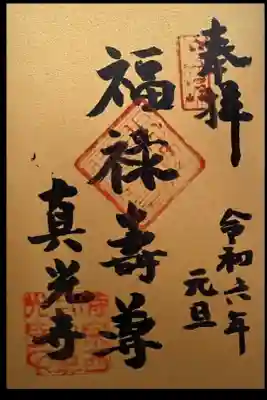 奉拝
令和六年
元旦
福禄寿尊
真光寺